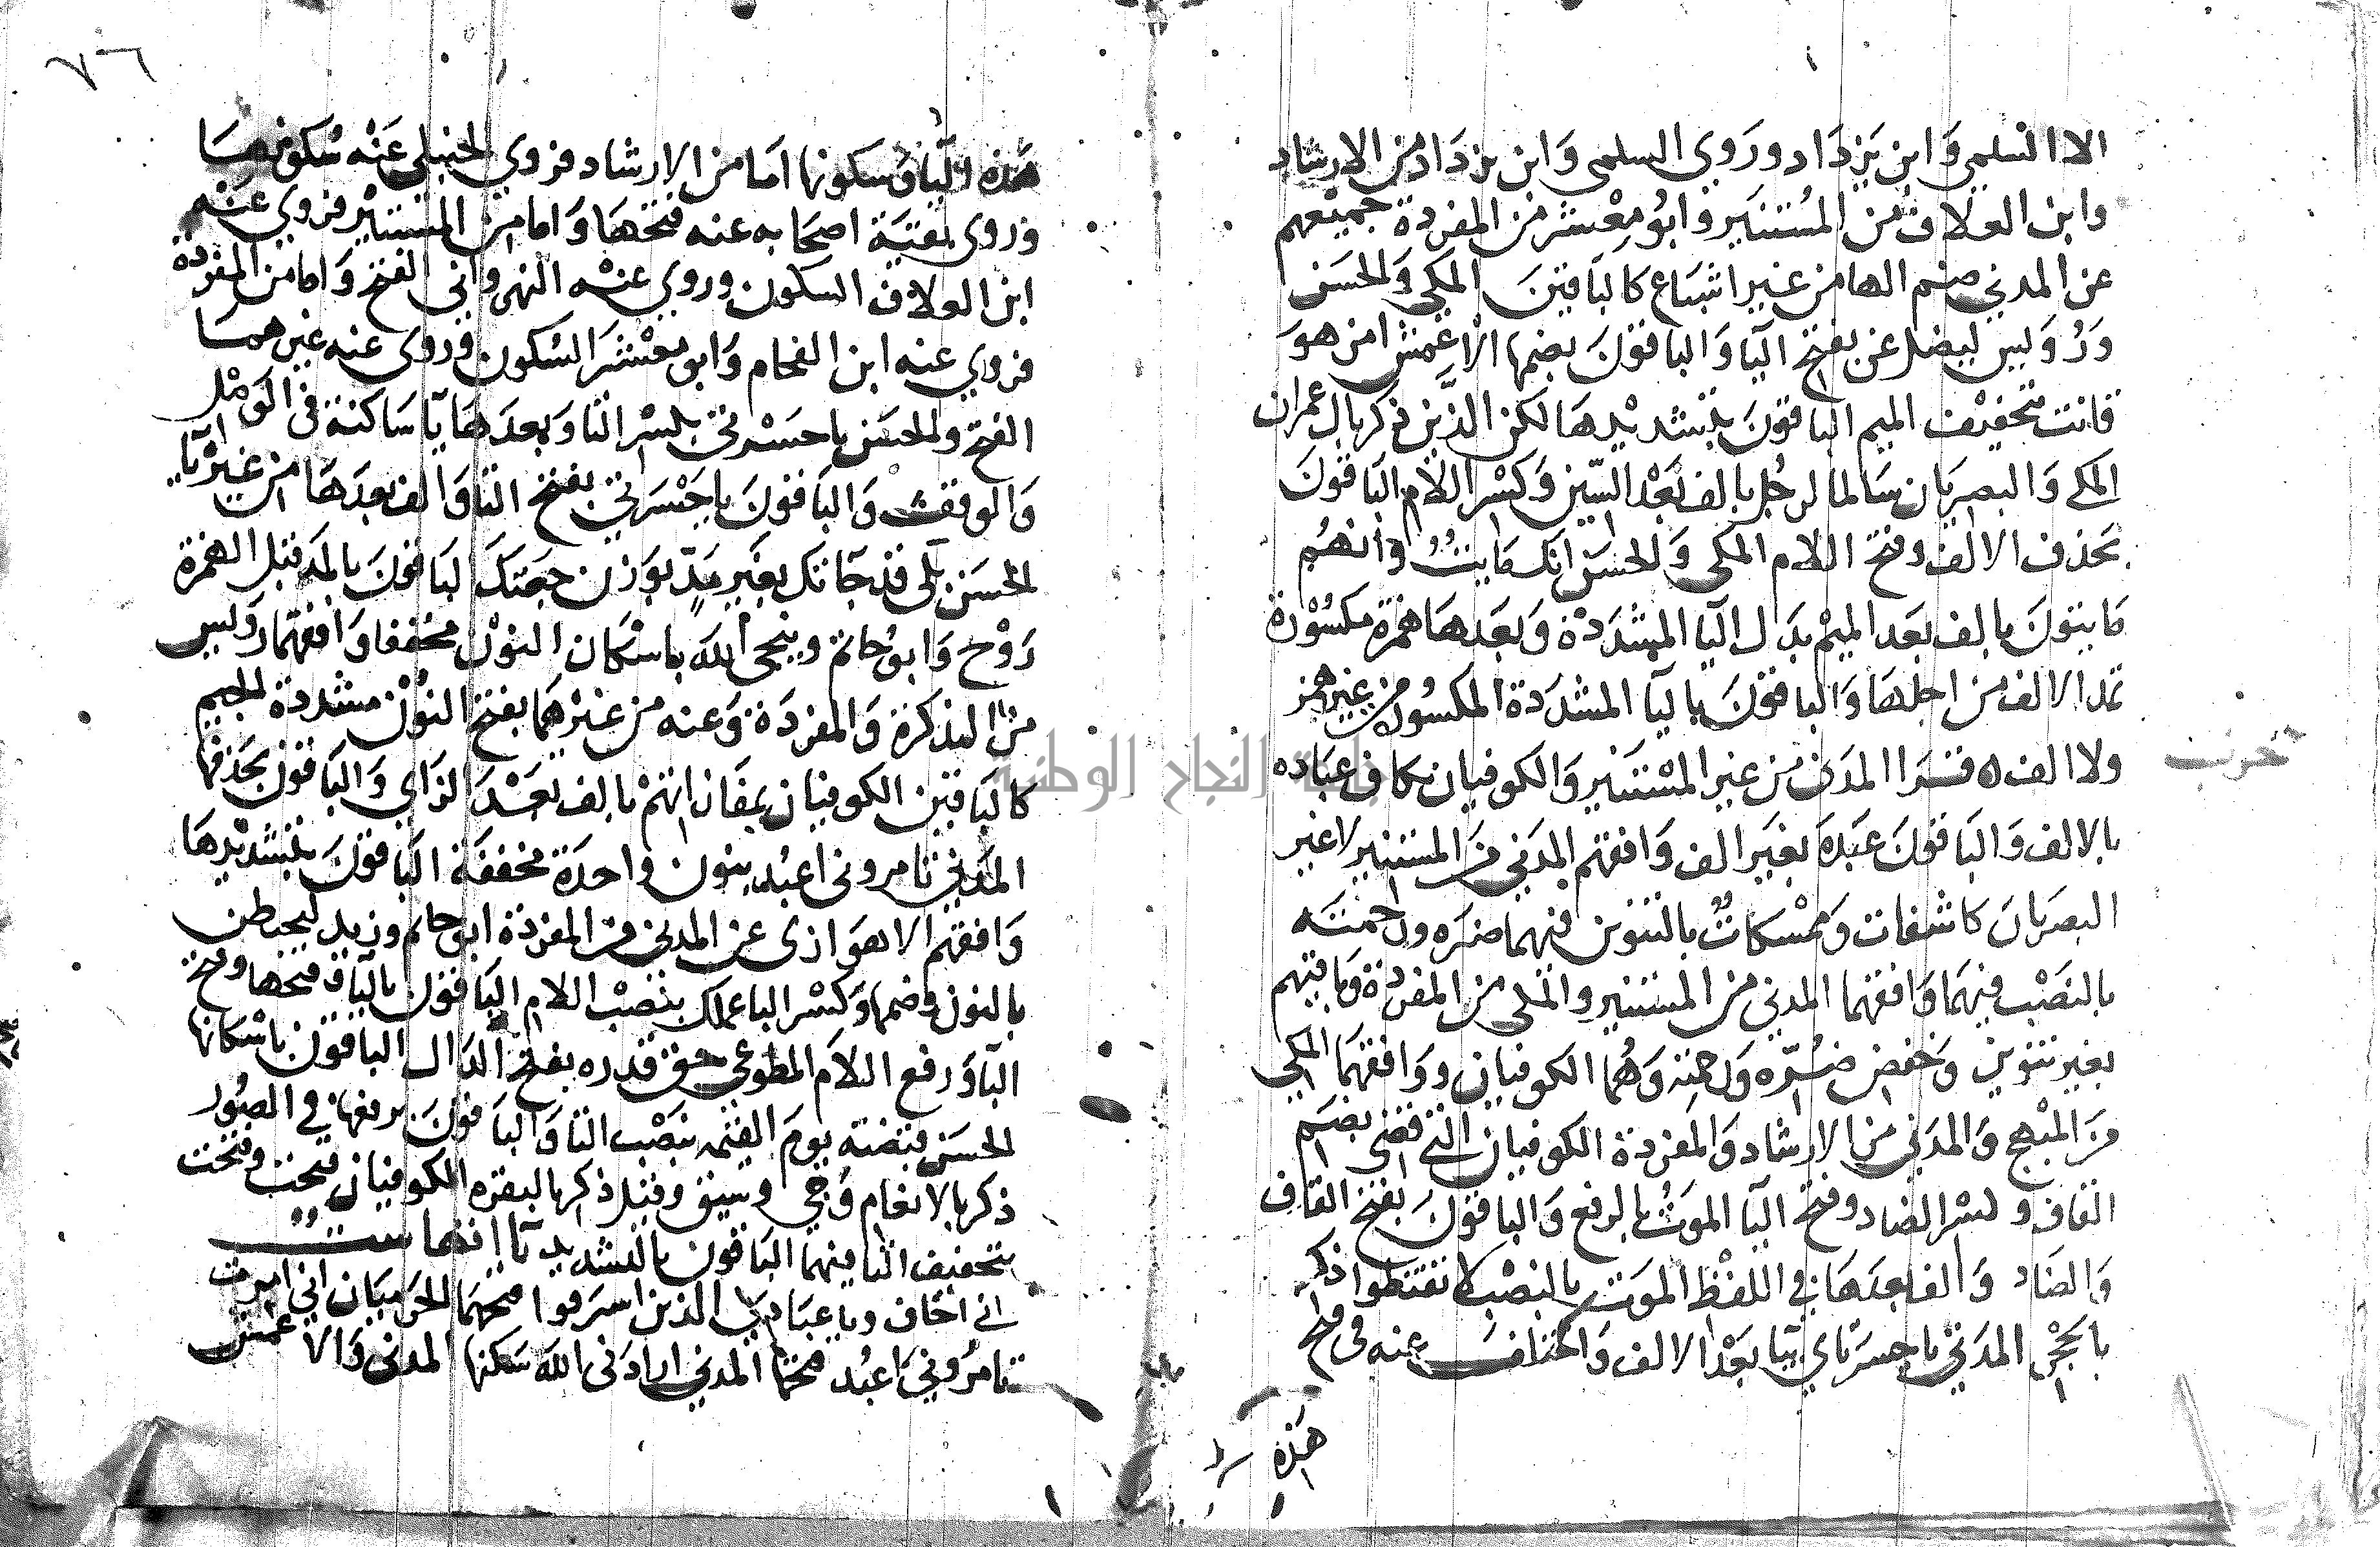 الا السلمي وابن يزداد وروي السلمي وابن يزداد من الارشاد
وابن العلاف من المستنير وابو معشر من المفردة جميعهم
عن المدني ضم الها من غير اشباع كالباقين المكي والحسن
ورويس ليضل عن بفتح اليا والباقون بضمها الاعمش امن هو
قانت بتخفيف الميم الباقون بتشديدها لكن الذين ذكر بال عمران
المكي والبصريان سالما لرجل بالف بعد السين وكسر اللام الباقون
بحذف الالف وفتح اللام المكي والحسن انك مايت وانهم
مايتون بالف بعد الميم بدل اليا المشددة وبعدها همزة مكسورة
تمد الالف من اجلها والباقون باليا المشددة المكسورة من غير همز
ولا الف ه قرا المدني من غير المستنير والكوفيان بكاف عباده
بالالف والباقون عبده بغير الف وافقهم المدني من المستنير لا غير
البصريان كاشفات وممسكات بالتنوين فيهما ضره ورحمته
بالنصب فيهما وافقهما المدني من المستنير والمكي من المفردة وباقيهم
بغير تنوين وخفض ضره ورحمته وهما الكوفيان ووافقهما المكي
من المبهج والمدني من الارشاد والمفردة الكوفيان التي قضي بضم
القاف وكسر الضاد وفتح اليا الموت بالرفع والباقون بفتح القاف
والضاد والف بعدها في اللفظ الموت بالنصب لا تقنطوا ذكر
بالحجر المدني يا حسرتاي بيا بعد الالف واختلف عنه في فتح
هذه
حزب
٧٦
هذه اليا وسكونها اما من الارشاد فروي الحنبلي عنه سكونها
وروي بقية اصحابه عنه فتحها واما من المستنير فروي عنه
ابن العلاف السكون وروي عنه النهرواني الفتح واما من المفردة
فروي عنه ابن الفحام وابو معشر السكون وروي عنه غيرهما
الفتح والحسن يا حسرتي بكسر التا وبعدها يا ساكنة في الوصل
والوقف والباقون يا حسرتي بفتح التا والف بعدها من غير يا
الحسن بلى قد جاتك بغير مد بوزن جعتك الباقون بالمد قبل الهمزة
روح وابو حاتم وينجي الله باسكان النون مخففا وافقهما رويس
من التذكرة والمفردة وعنه من غيرهما بفتح النون مشددة الجيم
كالباقين الكوفيان بمفازاتهم بالف بعد الزاي والباقون بحذفها
المدني تامروني اعبد بنون واحدة مخففة الباقون بتشديدها
وافقهم الاهوازي عن المدني من المفردة ابو حاتم وزيد ليحبطن
بالنون وضمها وكسر البا عملك بنصب اللام الباقون باليا وفتحها وفتح
البا ورفع اللام المطوعي حق قدره بفتح الدال الباقون باسكانها
الحسن قبضته يوم القيمه بنصب التا والباقون برفعها في الصور
ذكر بالانعام وجي وسيق وقيل ذكر بالبقره الكوفيان فتحت وفتحت
بتخفيف التا فيهما الباقون بالتشديد يا اضافها ست
اني اخاف ويا عبادي الذين اسرفوا فتحهما الحرميان اني امرت
تامروني اعبد فتحها المدني ارادني الله سكنها المدني والاعمش
جامعة النجاح الوطنية